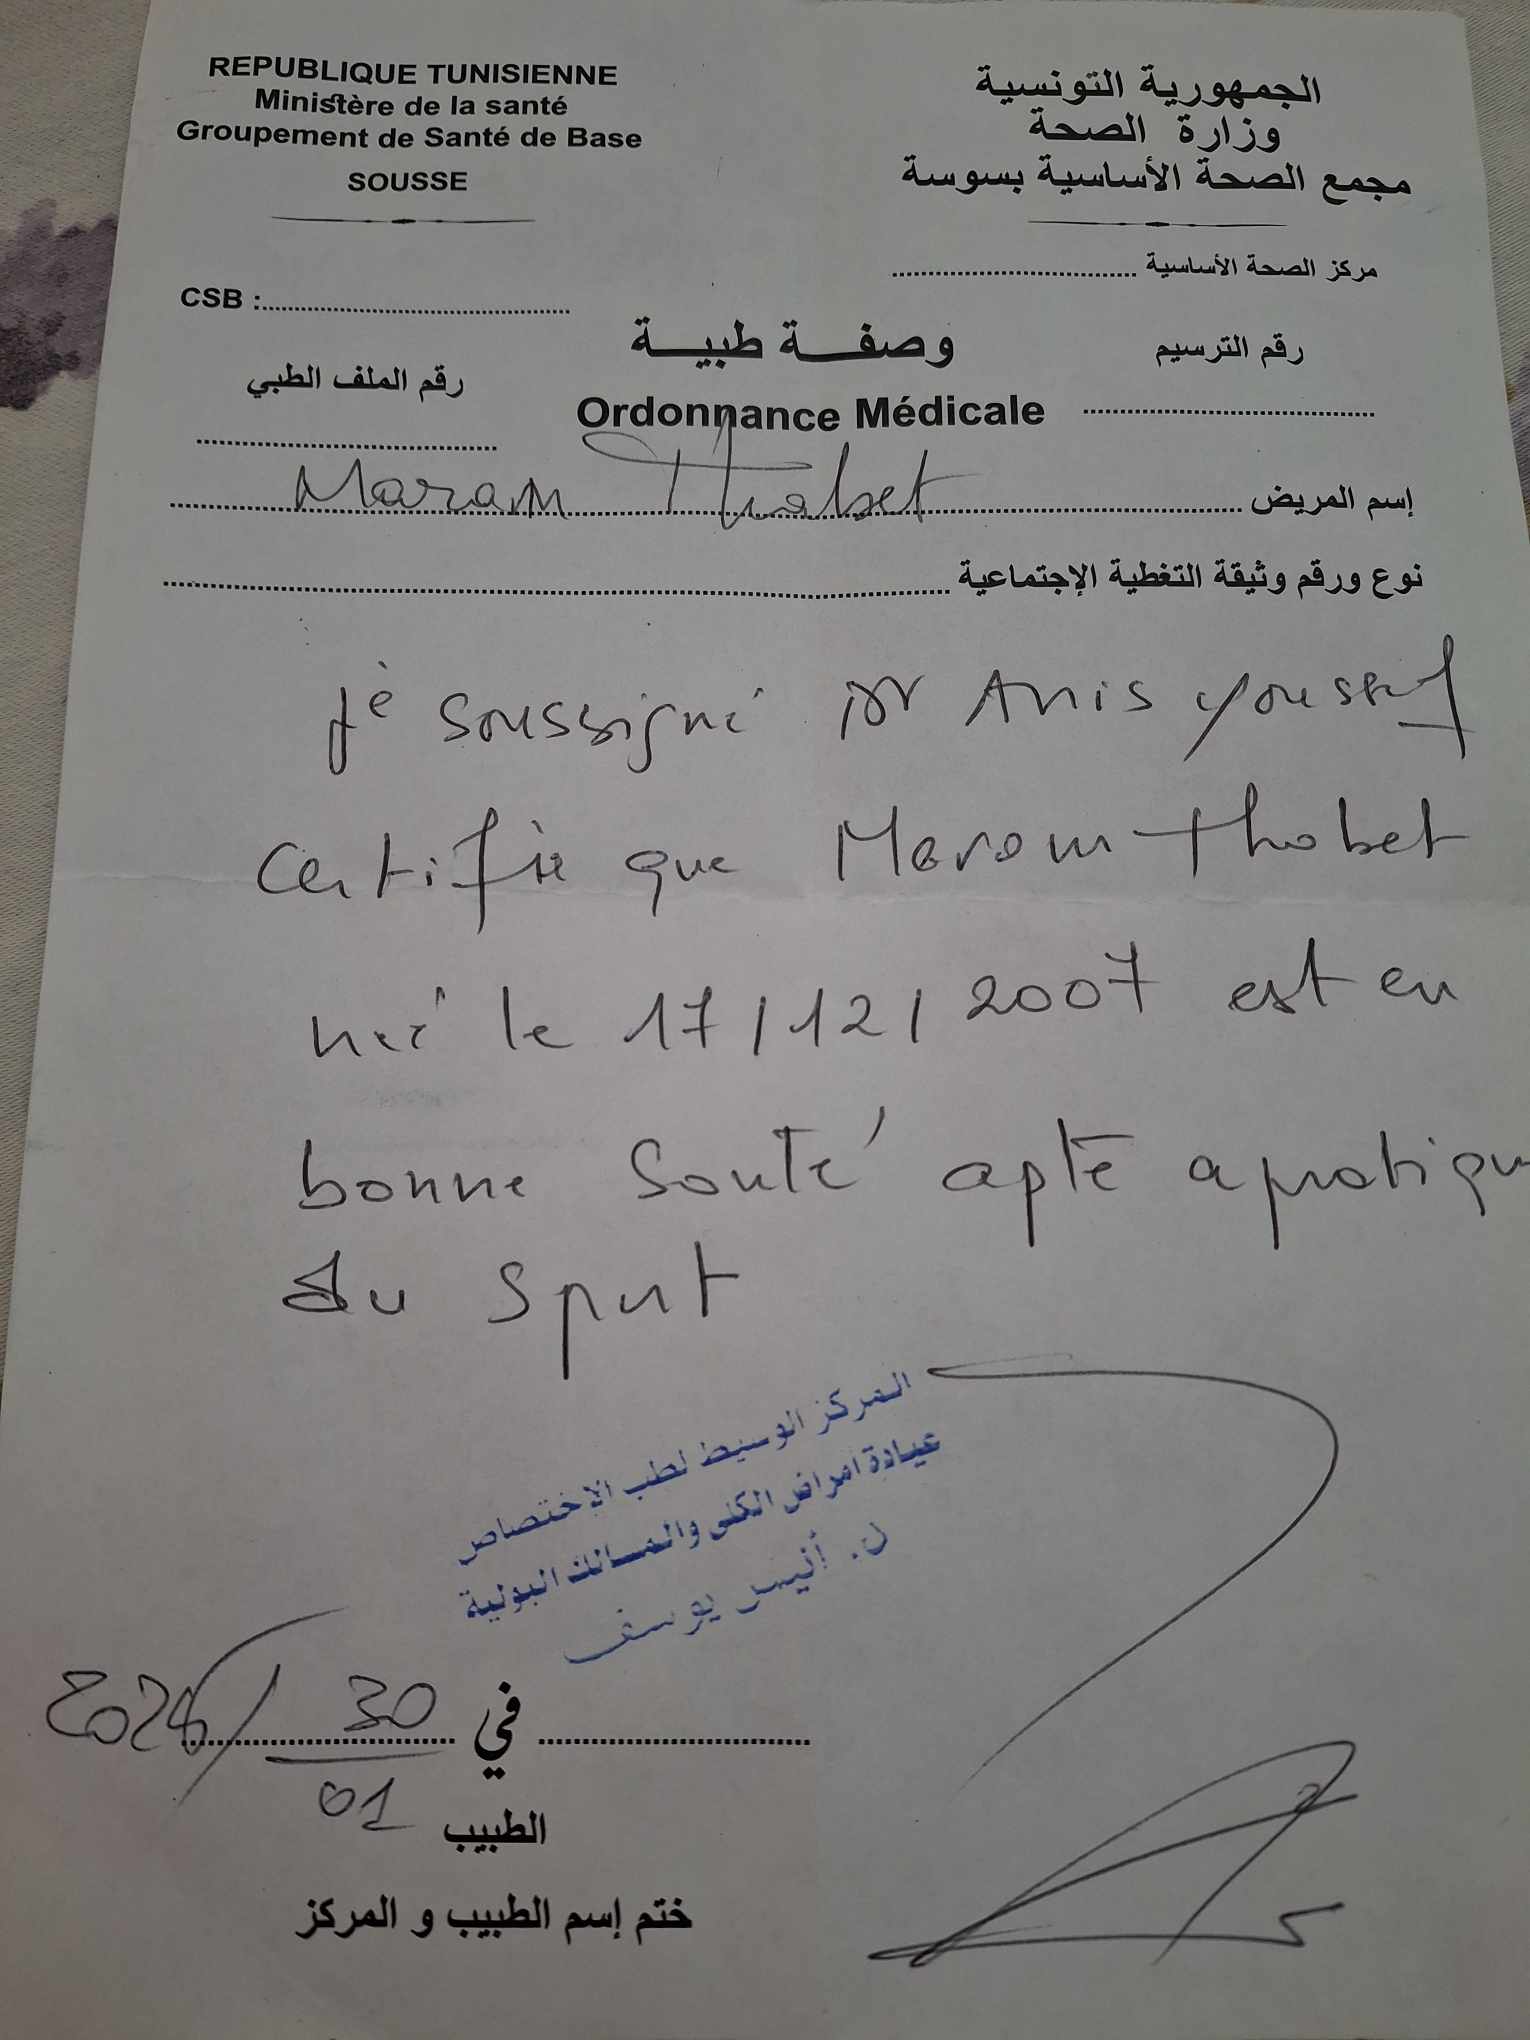 REPUBLIQUE TUNISIENNE
Ministère de la santé
Groupement de Santé de Base
SOUSSE
الجمهورية التونسية
وزارة الصحة
مجمع الصحة الأساسية بسوسة
مركز الصحة الأساسية
CSB :
وصفة طبية
رقم الترسيم
رقم الملف الطبي
Ordonnance Médicale
إسم المريض Maram Thabet
نوع ورقم وثيقة التغطية الإجتماعية
je soussigné Dr Anis Youssef
certifie que Maram Thabet
né le 17/12/2007 est en
bonne santé apte a pratique
du sport
المركز الوسيط لطب الاختصاص
عيادة امراض الكلى والمسالك البولية
د. أنيس يوسف
في 30
01
الطبيب
ختم إسم الطبيب و المركز